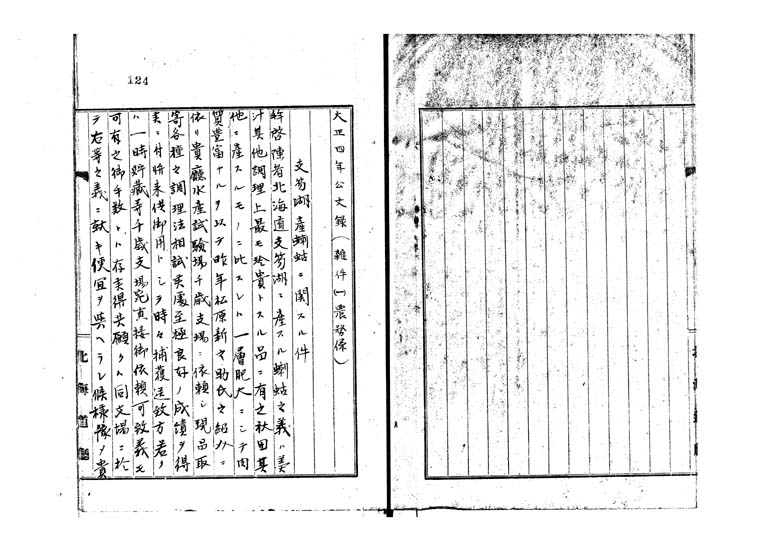 124
大正四年公文録(雑件(一)農務係)
支笏湖産蝲蛄ニ関スル件
拝啓陳者北海道支笏湖ニ産スル蝲蛄之義ハ美
汁其他調理上最モ珍貴トスル品ニ有之秋田其
他ニ産スルモノニ比スレハ一層肥大ニシテ肉
質豊富ナルヲ以テ昨年松原新之助氏之紹介ニ
依リ貴廳水産試験場千歳支場ニ依頼シ現品取
寄各種之調理法相試候處至極良好ノ成績ヲ得
ニ付将来供御用トシテ時々捕獲送致方若ノ
ハ一時貯藏等千歳支場宛直接御依頼可致義モ
可有之御手数トハ存候得共願クハ同支場ニ於
テ右等之義ニ就キ便宜ヲ与ヘラレ候様豫メ貴
北海道廳